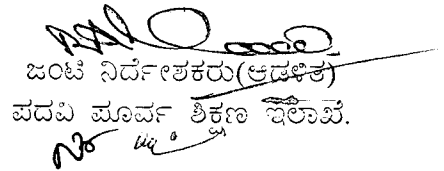 ಜಂಟಿ ನಿರ್ದೇಶಕರು(ಆಡಳಿತ)
ಪದವಿ ಪೂರ್ವ ಶಿಕ್ಷಣ ಇಲಾಖೆ.